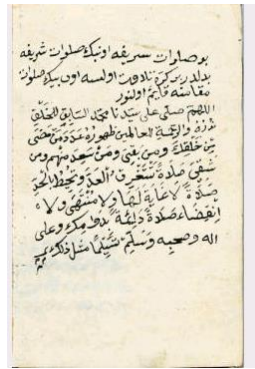 بو صلوات شريفه اون بيك صلوات شريفه
بدلدر بر كره تلاوت اولنسه اون بيك صلوات
مقامنه قايم اولنور
اللهم صل على سيدنا محمد السابق للخلق
نوره والرحمة للعالمين ظهوره عدد من مضى
من خلقك ومن بقى ومن سعد منهم ومن
شقى صلاة تستغرق العد وتحيط بالحد
صلاة لا غاية لها ولا منتهى ولا
انقضاء صلاة دائمة بدوامك وعلى
اله وصحبه وسلم تسليما مثل ذلك